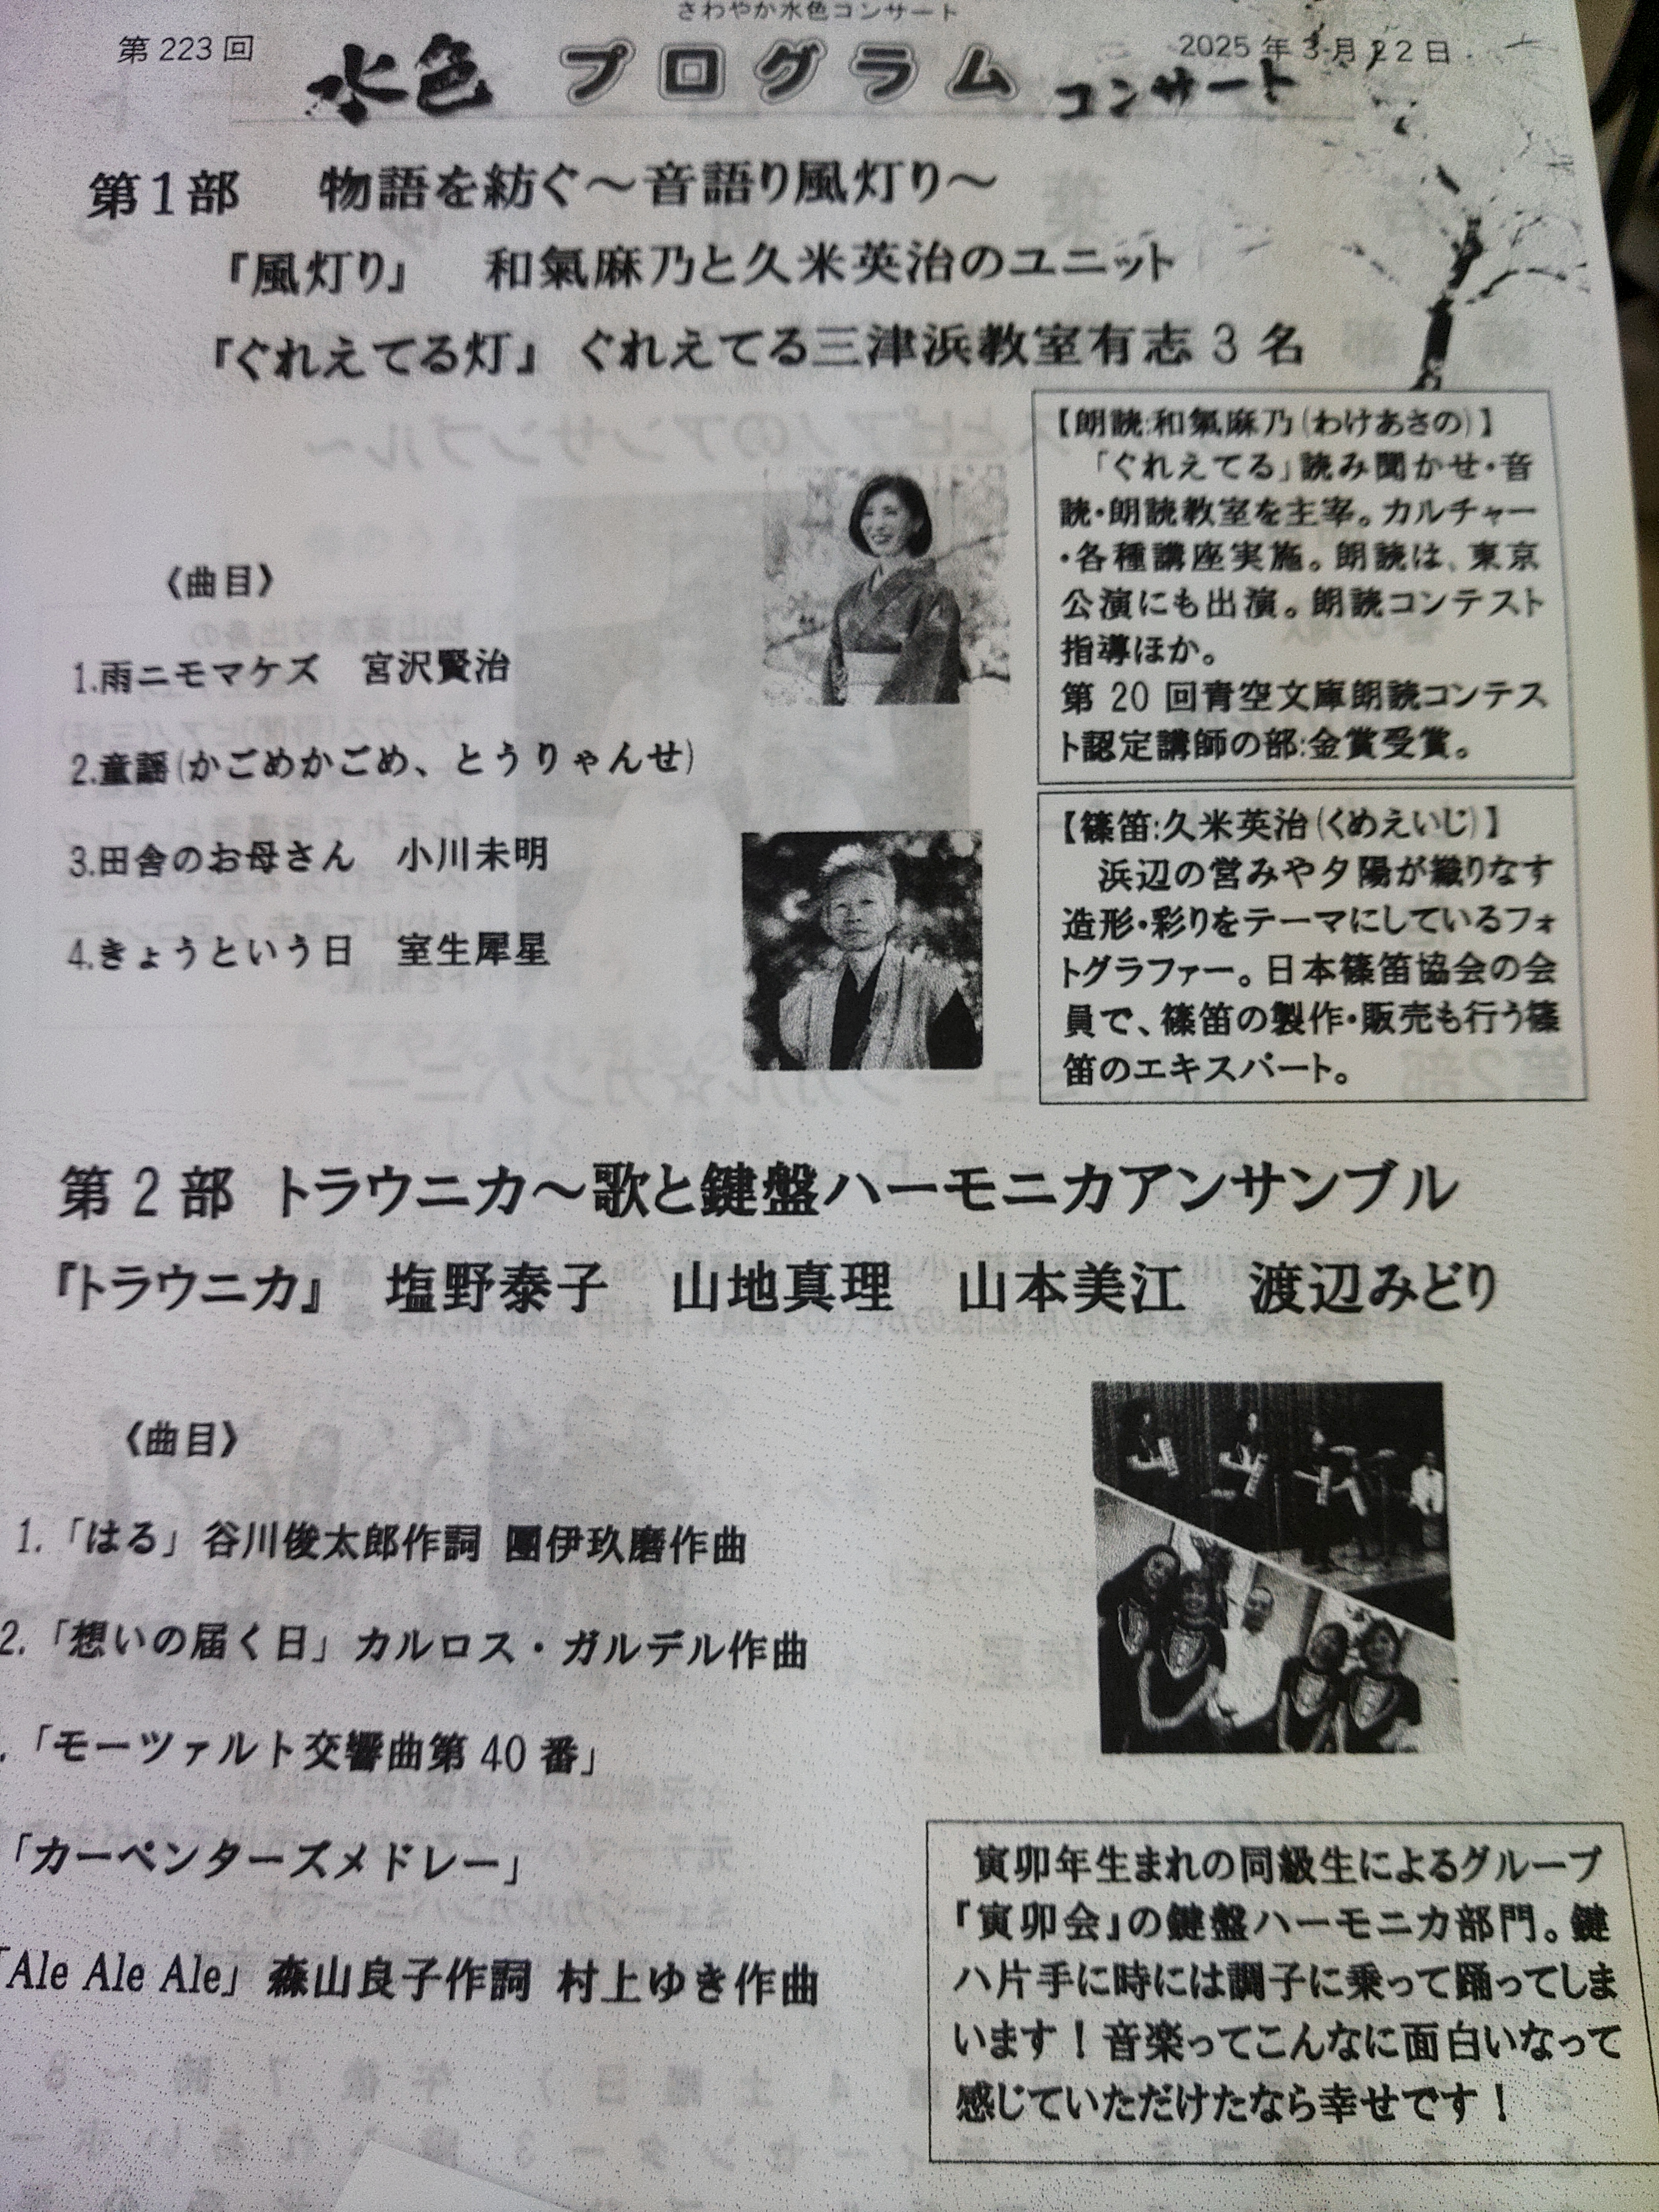 さわやか水色コンサート
第223回
水色 プログラム コンサート
2025年3月22日
第1部 物語を紡ぐ～音語り風灯り～
『風灯り』 和氣麻乃と久米英治のユニット
『ぐれえてる灯』 ぐれえてる三津浜教室有志3名
【朗読:和氣麻乃(わけあさの)】
「ぐれえてる」読み聞かせ・音
読・朗読教室を主宰。カルチャー
・各種講座実施。朗読は、東京
公演にも出演。朗読コンテスト
指導ほか。
第20回青空文庫朗読コンテス
ト認定講師の部:金賞受賞。
《曲目》
1.雨ニモマケズ 宮沢賢治
2.童謡(かごめかごめ、とうりゃんせ)
3.田舎のお母さん 小川未明
4.きょうという日 室生犀星
【篠笛:久米英治(くめえいじ)】
浜辺の営みや夕陽が織りなす
造形・彩りをテーマにしているフォ
トグラファー。日本篠笛協会の会
員で、篠笛の製作・販売も行う篠
笛のエキスパート。
第2部 トラウニカ～歌と鍵盤ハーモニカアンサンブル
『トラウニカ』 塩野泰子 山地真理 山本美江 渡辺みどり
《曲目》
1.「はる」谷川俊太郎作詞 團伊玖磨作曲
2.「想いの届く日」カルロス・ガルデル作曲
.「モーツァルト交響曲第40番」
「カーペンターズメドレー」
「Ale Ale Ale」森山良子作詞 村上ゆき作曲
寅卯年生まれの同級生によるグループ
『寅卯会』の鍵盤ハーモニカ部門。鍵
ハ片手に時には調子に乗って踊ってしま
います！音楽ってこんなに面白いなって
感じていただけたなら幸せです！